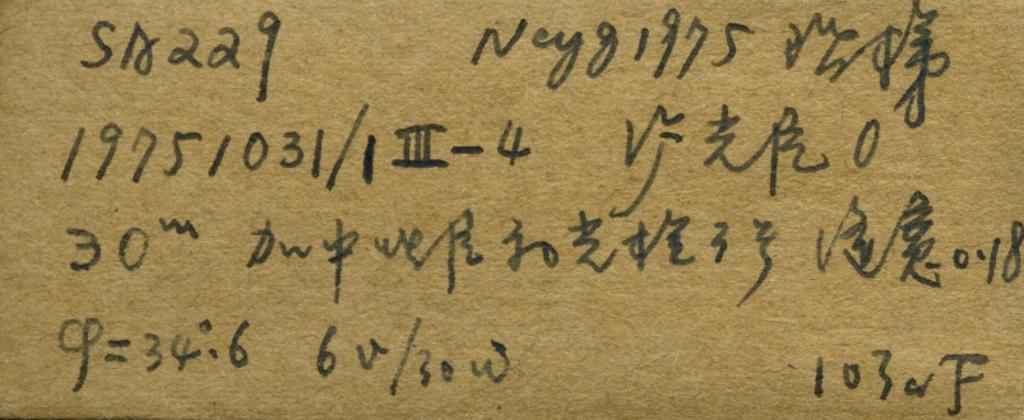 SA229 Ncyg1975 阶梯
19751031/1 Ⅲ-4 光尺 0
30ᵐ 加中 和光栏 3号 0.18
φ=34°.6 6v/30w 103aF